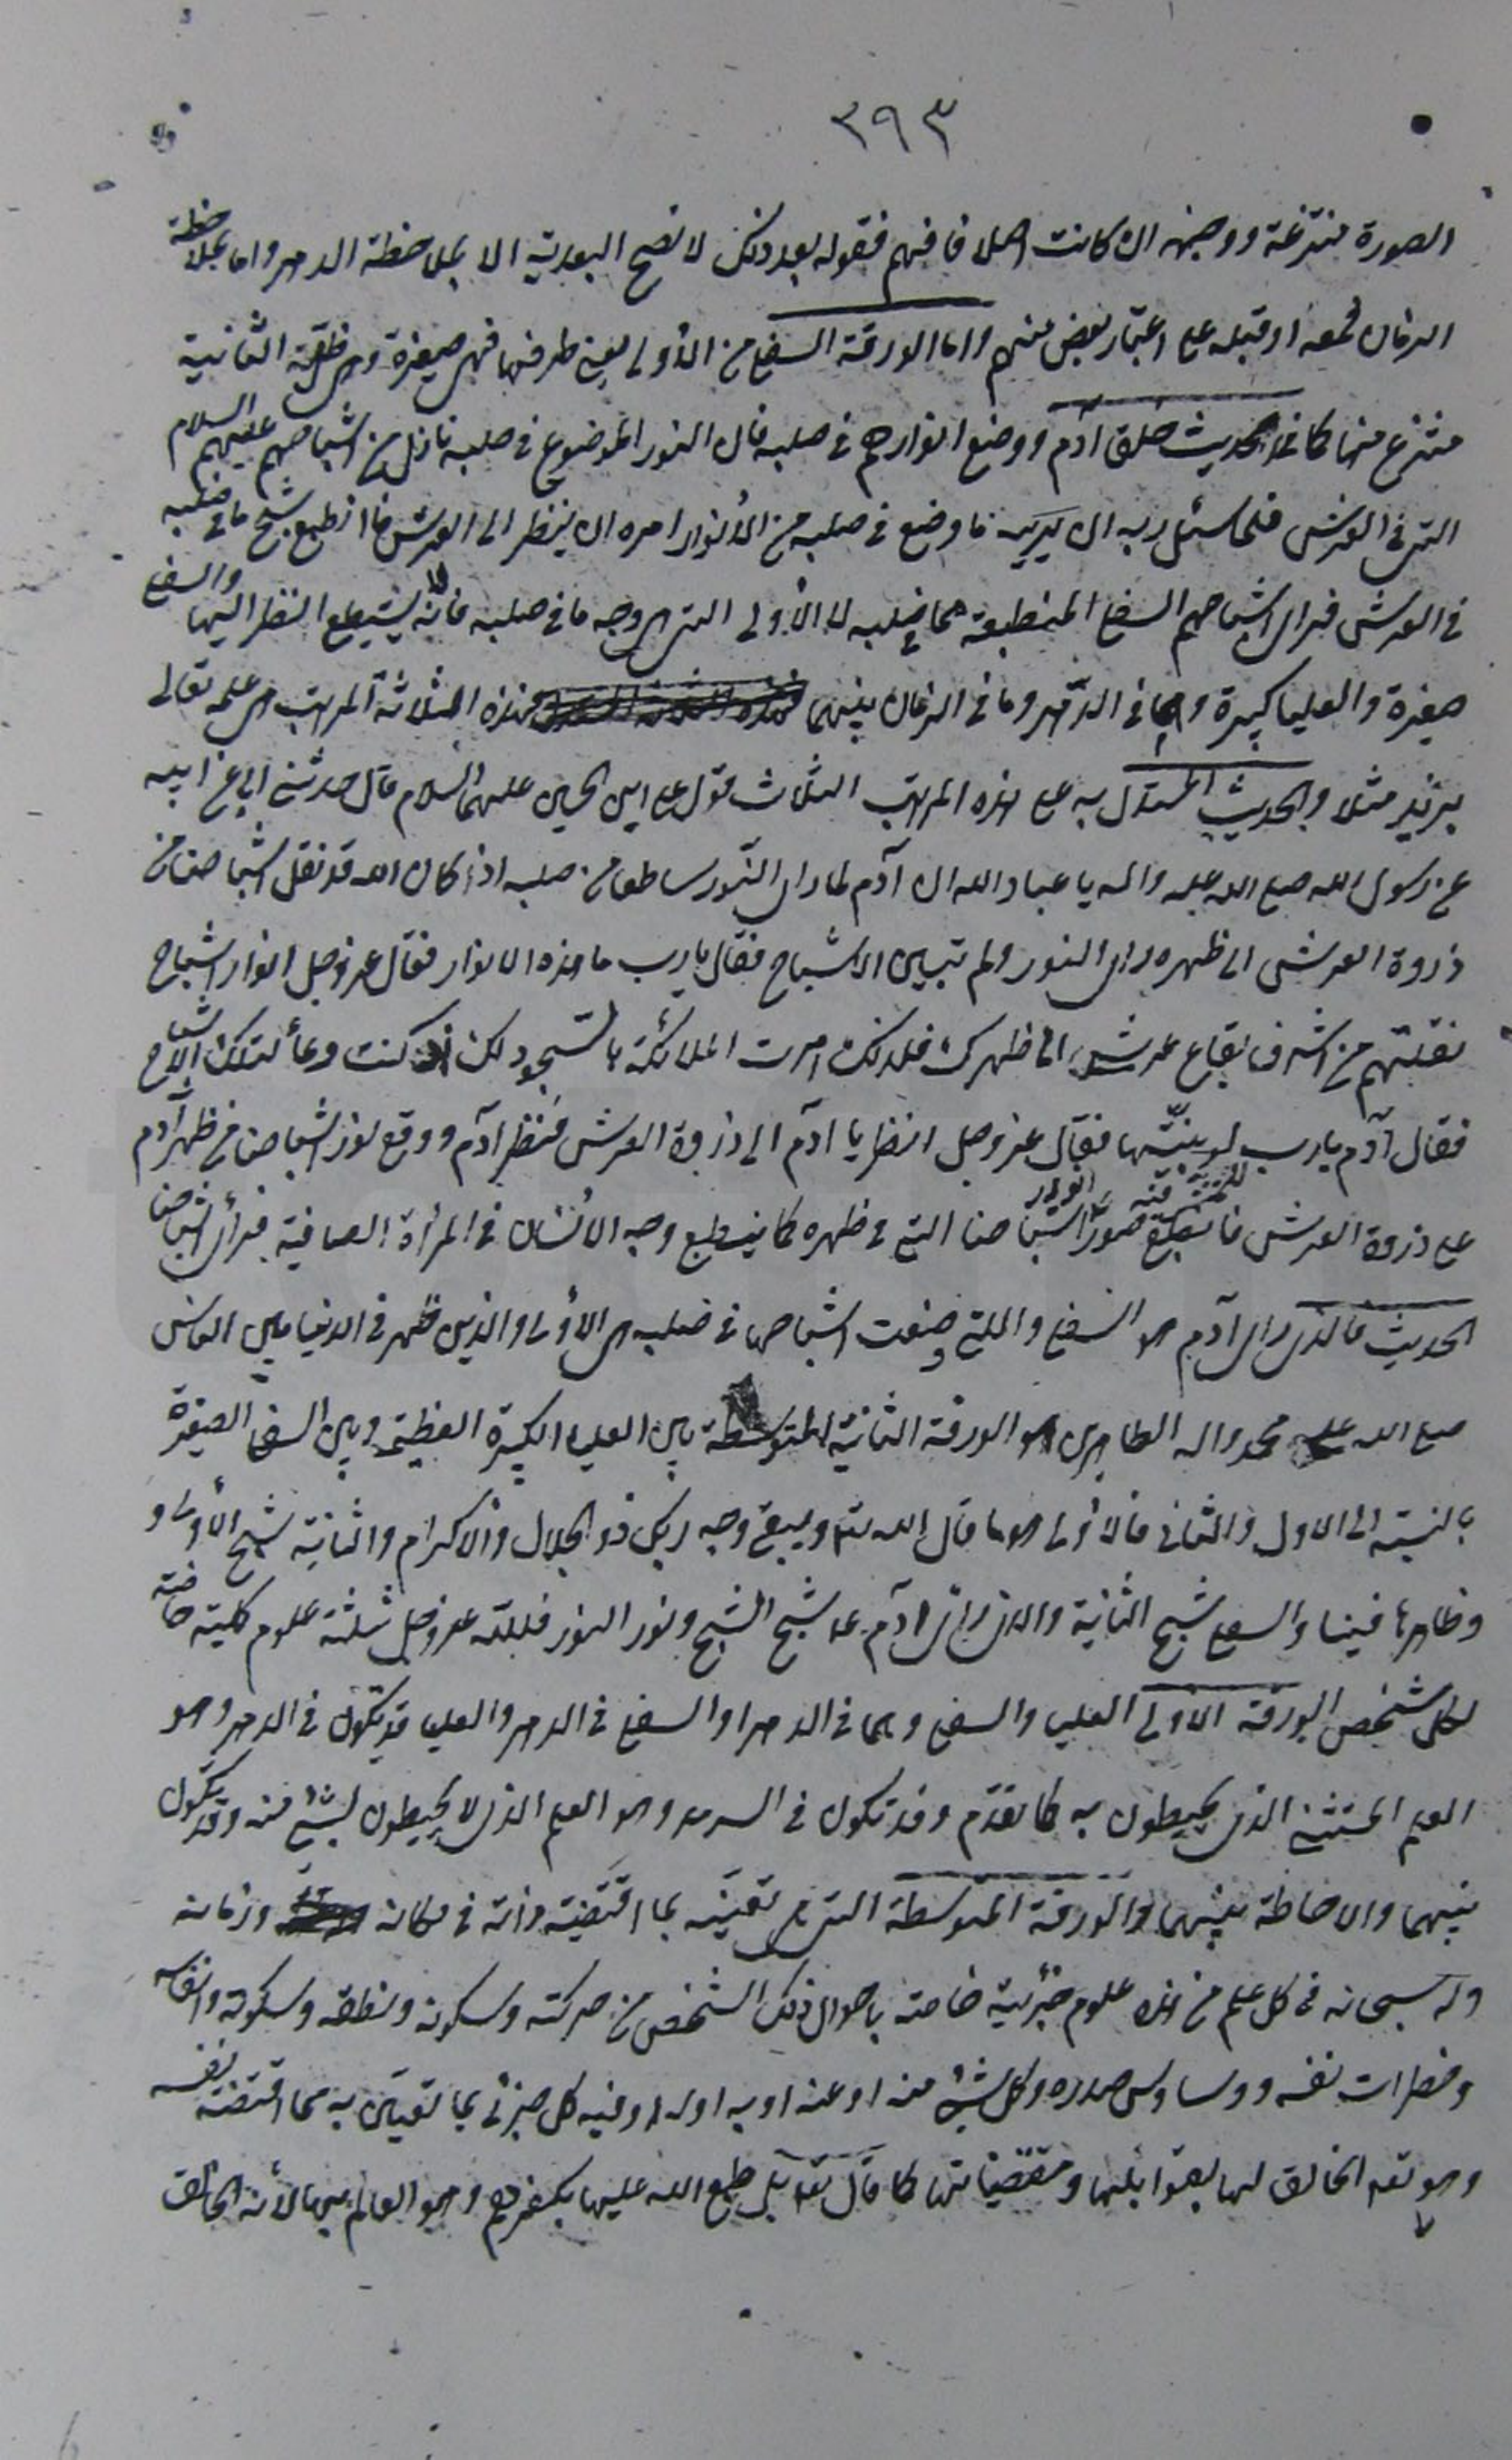 ٣٩٣
الصورة منتزعة ووجهه ان كانت اصلا فافهم فقوله بعد ذلك لا تصح البعدية الا بملاحظة الدهر واما بملاحظة
الزمان فمعه او قبله على اعتبار بعض منهم واما الورقة السفلى من الأولى يعني طرفها فهى صغيرة وهى ظلية الثانية
منتزع منها كما فى حديث خلق آدم ووضع انوارهم فى صلبه فان النور الموضوع فى صلبه نازل من اشباحهم عليهم السلام
التى فى العرش فلما سئل ربه ان يريه ما وضع فى صلبه من الأنوار امره ان ينظر الى العرش فانطبع شبح ما فى صلبه
فى العرش فراى اشباحهم السفلى المنطبعة مما فى صلبه لا الأولى التى هى وجه ما فى صلبه فانه لا يستطيع النظر اليها والسفلى
صغيرة والعليا كبيرة وهما فى الدهر وما فى الزمان بينهما فهذه الثلاثة المراتب هى علمه تعالى
بزيد مثلا والحديث المستدل به على هذه المراتب الثلاث قول على بن الحسين عليهما السلام قال حدثنى ابى عن ابيه
عن رسول الله صلى الله عليه واله يا عباد الله ان آدم لما راى النور ساطعا من صلبه اذ كان الله قد نقل اشباحنا من
ذروة العرش الى ظهره راى النور ولم تبين الاشباح فقال يا رب ما هذه الانوار فقال عز وجل انوار اشباح
نقلتهم من اشرف بقاع عرشى الى ظهرك فلذلك امرت الملائكة بالسجود لك اذ كنت وعاء لتلك الاشباح
فقال آدم يا رب لو بينتها فقال عز وجل انظر يا آدم الى ذروة العرش فنظر آدم ووقع نور اشباحنا من ظهر آدم
على ذروة العرش فانطبع فيه صور انوار اشباحنا التى فى ظهره كما ينطبع وجه الانسان فى المرآة الصافية فرأى اشباحنا
الحديث فالذى راى آدم هو السفلى والتى وضعت اشباحها فى صلبه هى الأولى والذين ظهر فى الدنيا بين الناس
صلى الله على محمد واله الطاهرين هو الورقة الثانية المتوسطة بين العليا الكبيرة العظيمة وبين السفلى الصغيرة
بالنسبة الى الاول والثانى فالأولى هو ما قال الله تعالى ويبقى وجه ربك ذو الجلال والاكرام والثانية شبح الأولى و
ظاهرها فينا والسفلى شبح الثانية والذى راى آدم ع شبح الشبح ونور النور فلله عز وجل ثلثة علوم كلية خاصة
لكل شخص الورقة الاولى العليا والسفلى وهما فى الدهر او السفلى فى الدهر والعليا قد تكون فى الدهر وهو
العلم المستثنى الذى يحيطون به كما تقدم وقد تكون فى السرمد وهو العلم الذى لا يحيطون بشئ منه وقد تكون
بينهما والاحاطة بينهما والورقة المتوسطة التى هى تعينه بما اقتضته ذاته فى مكانه وزمانه
وله سبحانه فى كل علم من هذه علوم جزئية خاصة باحوال ذلك الشخص من حركته وسكونه ونطقه وسكوته وانفاسه
وخطرات نفسه ووساوس صدره وكل شئ منه او عنه او به او له او فيه كل جزئى بما تعين به مما اقتضته نفسه
وهو تعه الخالق لها بقوابلها ومقتضياتها كما قال تعه بل طبع الله عليها بكفرهم وهو العالم بها لأنه الخالق